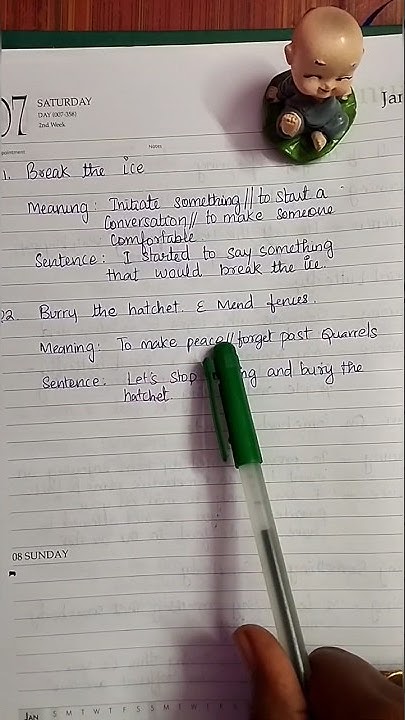 07
SATURDAY
DAY (007-358)
2nd Week
Jan
Notes
1. Break the ice
Meaning: Initiate something // to start a
Conversation // to make someone
Comfortable.
Sentence: I started to say something
that would break the ice.
02. Burry the hatchet. & Mend fences.
Meaning: To make peace // forget past Quarrels
Sentence: Let's stop and bury the
hatchet.
08 SUNDAY
JAN S M T W T F S S M T W